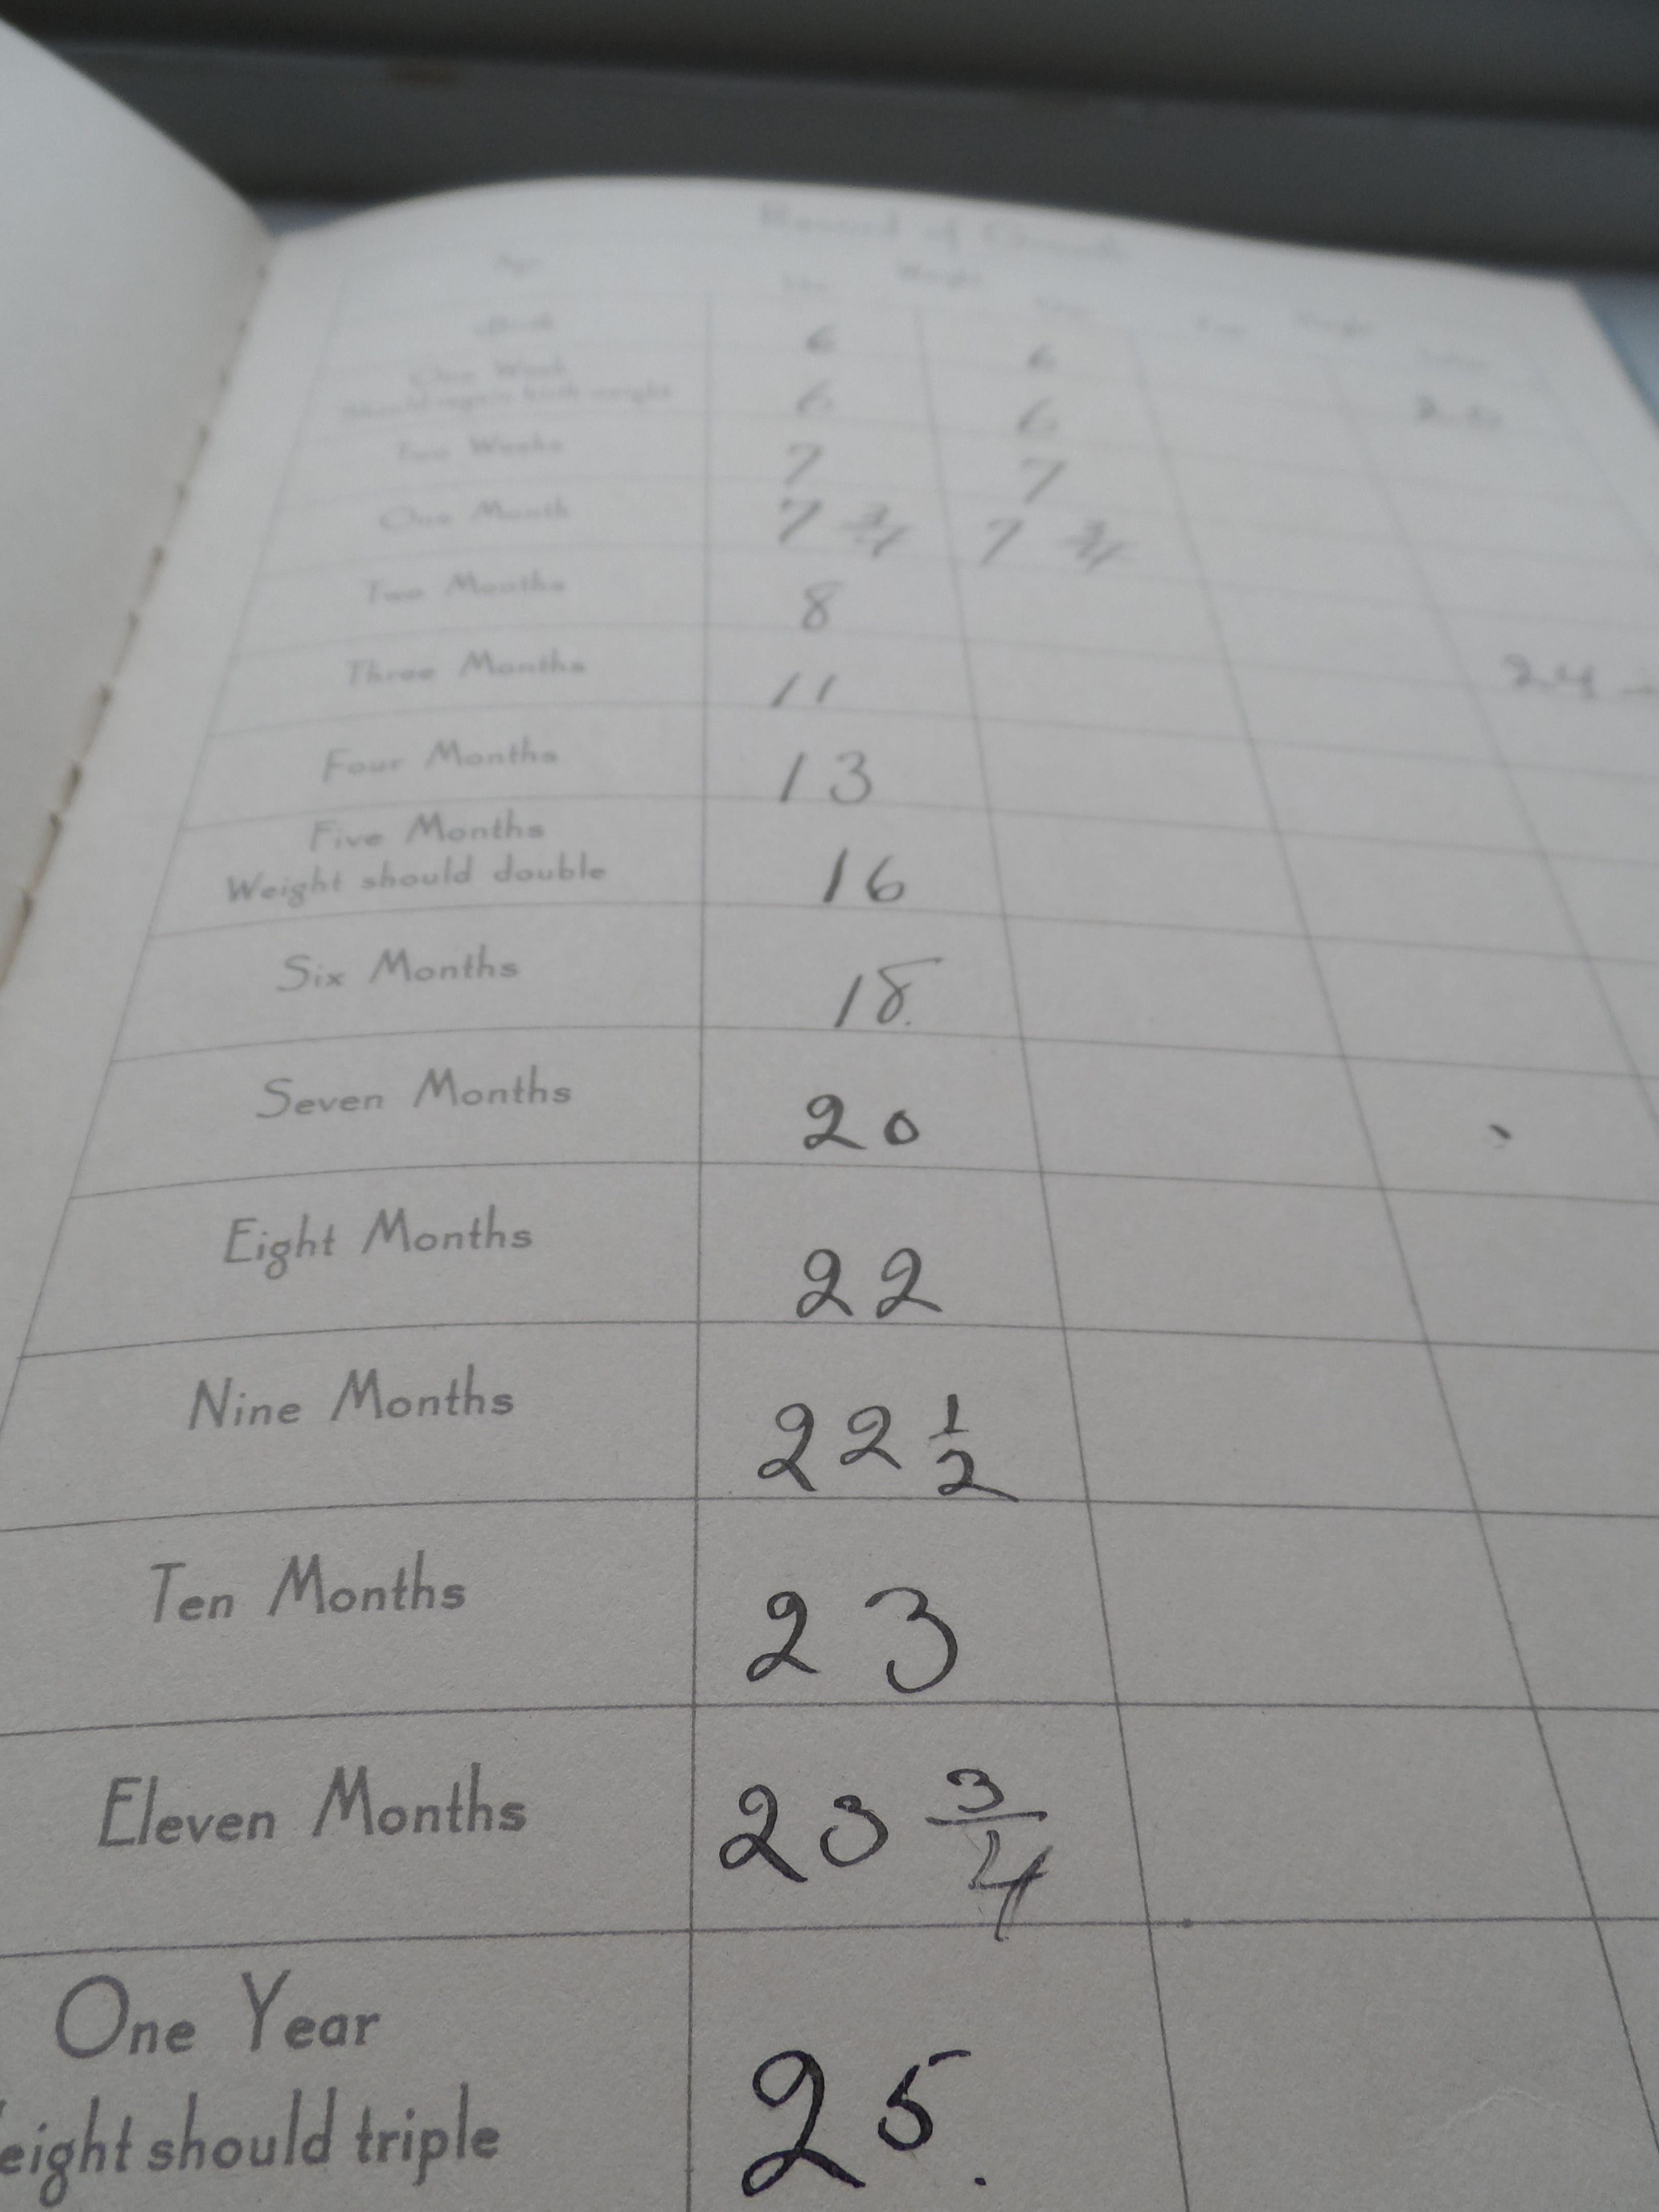 Record of Growth
Age Lbs. Weight Ozs. Feet Height Inches
Birth 6 6
One Week
Should regain birth weight 6 6 20
Two Weeks 7 7
One Month 7 3/4 7 3/4
Two Months 8
Three Months 11 24
Four Months 13
Five Months
Weight should double 16
Six Months 18.
Seven Months 20
Eight Months 22
Nine Months 22 1/2
Ten Months 23
Eleven Months 23 3/4
One Year 25.
eight should triple